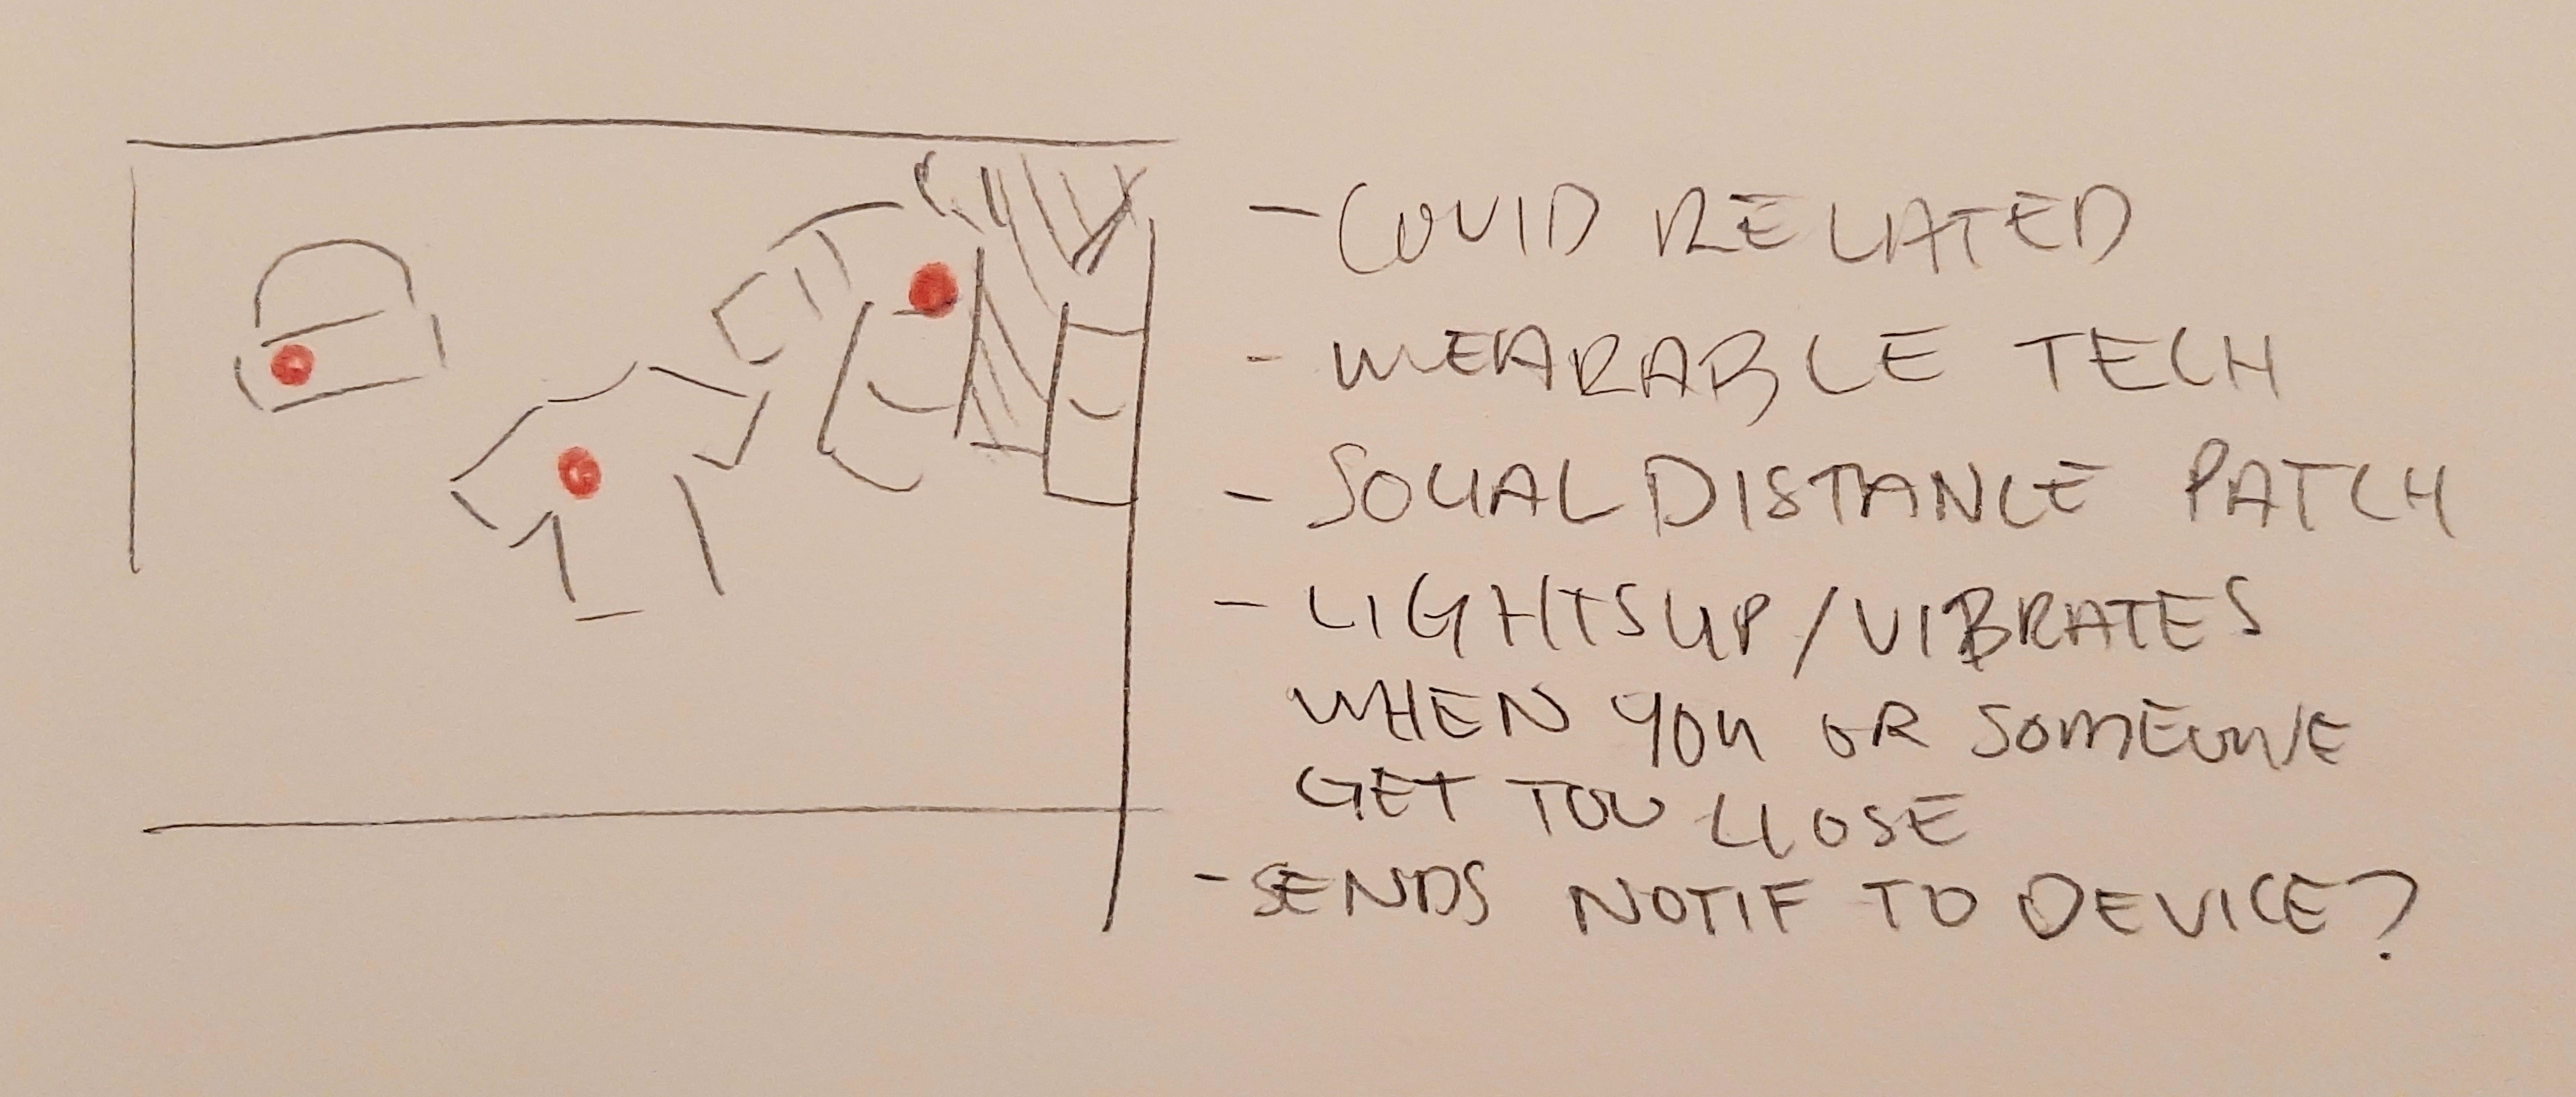 - COVID RELATED
- WEARABLE TECH
- SOCIAL DISTANCE PATCH
- LIGHTS UP/VIBRATES
WHEN YOU OR SOMEONE
GET TOO CLOSE
- SENDS NOTIF TO DEVICE?